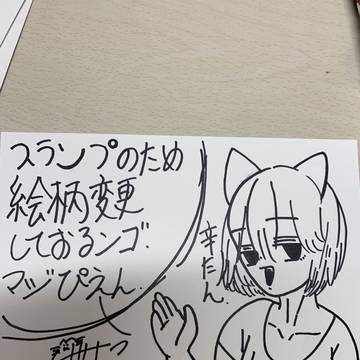 スランプのため
絵柄変更
しておるンゴ.
マジぴえん.
辛たん.